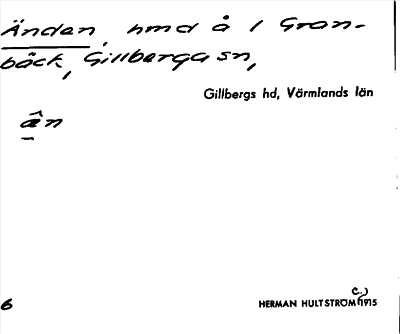 Änden, hmd å 1 Gran-
bäck, Gillberga sn,
Gillbergs hd, Värmlands län
ân
6
HERMAN HULTSTRÖM (C.) 1915